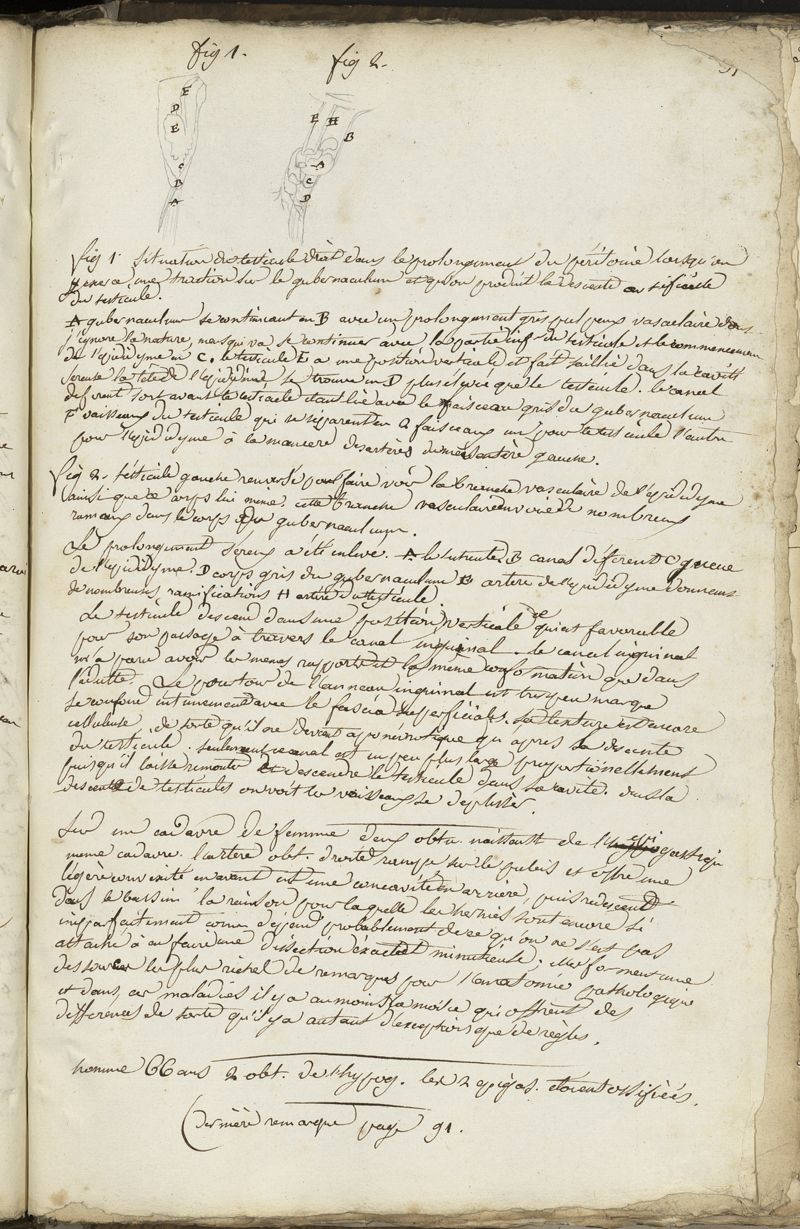 fig 1. fig 2.
E
D
E
C
B
A
E H
B
A
C
D
fig 1. Situation du testicule droit dans le prolongement du péritoine lorsqu'on
exerce une traction sur le gubernaculum et qu'on produit la descente artificielle
du testicule.
A gubernaculum se continuant en B avec un prolongement gris peu vasculaire dont
j'ignore la nature, mais qui va se continuer avec la partie inf. du testicule et le commencement
de l'épididyme en C. le testicule E a une position verticale et fait saillie dans la cavité
séreuse la tete de l'épididyme se trouve en D plus élevée que le testicule. le canal
deferent sort avant le testicule étant lié avec le faisceau gris du gubernaculum
F vaisseaux du testicule qui se séparent en 2 faisceaux un pour le testicule l'autre
pour l'épididyme à la maniere des artères du mésentère gauche.
fig 2. testicule gauche renversé pour faire voir la branche vasculaire de l'épididyme
ainsi que ce corps lui meme. cette branche vasculaire envoie de nombreux
rameaux dans le corps du gubernaculum.
Le prolongement séreux a été enlevé. A le testicule B canal différent C queue
de l'épididyme. D corps gris du gubernaculum E artere de l'épididyme donnant
de nombreuses ramifications H artère du testicule
Le testicule descend dans une position verticale ce qui est favorable
pour son passage à travers le canal inguinal. le canal inguinal
m'a paru avoir les memes rapports et la même conformation que dans
l'adulte. Le pourtour de l'anneau inguinal est très peu marqué
se confond intimement avec le fascia superficialis. sa texture est encore
celluleuse, de sorte qu'il ne devient aponévrotique qu'après la descente
du testicule. seulement ce canal est un peu plus large proportionellement
puisqu'il laisse remonter et descendre le testicule dans sa cavité. dans la
descente de testicules on voit les vaisseaux se deplisser.
Sur un cadavre de femme deux obtu. naissant de l'epigastrique
meme cadavre. l'artère obt. droite rampe sur le pubis et offre une
légère convexité en avant et une concavité en arrière, puis redescend
dans le bassin la raison pour laquelle les hernies sont encore si
imparfaitement connues dépend probablement de ce qu'on ne s'est pas
attaché à en faire une dissection exacte et minutieuse. elles forment une
des sources les plus riches de remarques pour l'anatomie pathologique
et dans ces maladies il y a au moins la moitié qui offrent des
différences de sorte qu'il y a autant d'exceptions que de règles.
homme 66 ans 2 obt. de l'hypog. les 2 epigas. étoient ossifiées.
(dernière remarque page 91.